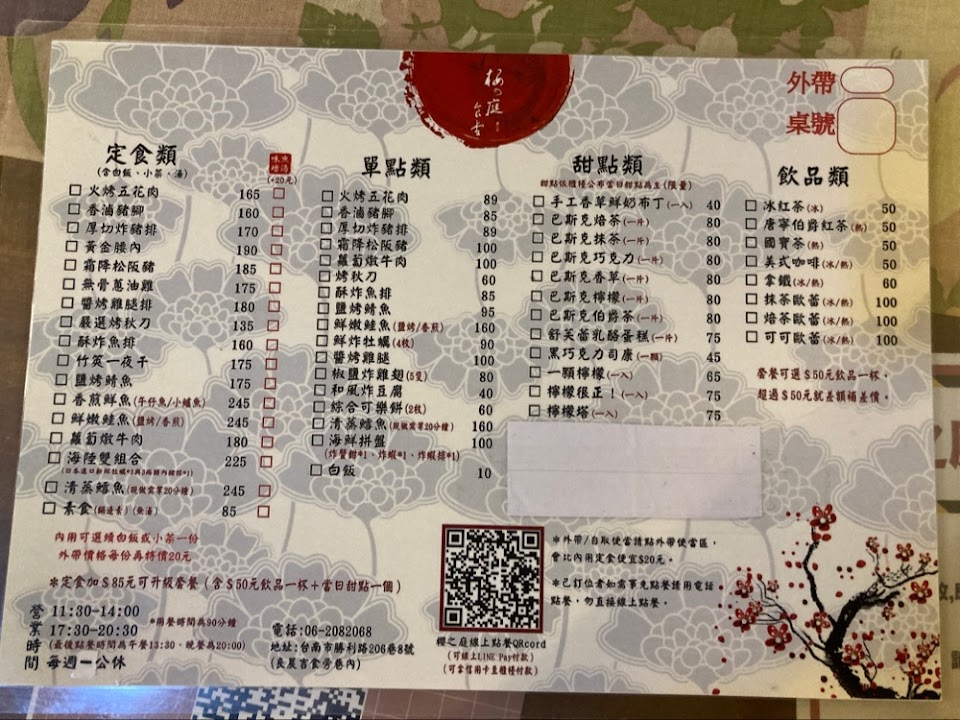 櫻の庭
食舍
外帶
桌號
定食類
(含白飯、小菜、湯)
味噌魚湯
(+20元)
火烤五花肉 165
香滷豬腳 160
厚切炸豬排 170
黃金腰內 190
霜降松阪豬 185
無骨蔥油雞 175
醬烤雞腿排 180
嚴選烤秋刀 135
酥炸魚排 160
竹筴一夜干 175
鹽烤鯖魚 175
香煎鮮魚(午仔魚/小鱸魚) 245
鮮嫩鮭魚(鹽烤/香煎) 245
蘿蔔燉牛肉 180
海陸雙組合 225
清蒸鱈魚(現做需等20分鐘) 245
素食(鍋邊素)(無湯) 85
內用可選續白飯或小菜一份
外帶價格每份再特價20元
*定食加$85元可升級套餐(含$50元飲品一杯+當日甜點一個)
營業時間
11:30-14:00
17:30-20:30
*用餐時間為90分鐘
(最後點餐時間為午餐13:30、晚餐為20:00)
每週一公休
電話:06-2082068
地址:台南市勝利路206巷8號
(良晨吉食旁巷內)
單點類
火烤五花肉 89
香滷豬腳 85
厚切炸豬排 89
霜降松阪豬 100
蘿蔔燉牛肉 100
烤秋刀 60
酥炸魚排 85
鹽烤鯖魚 95
鮮嫩鮭魚(鹽烤/香煎) 160
鮮炸牡蠣(4枚) 90
醬烤雞腿 100
椒鹽炸雞翅(5隻) 80
和風炸豆腐 40
綜合可樂餅(2枚) 60
清蒸鱈魚(現做需等20分鐘) 160
海鮮拼盤 100
白飯 10
櫻之庭線上點餐QRcord
(可線上LINE Pay付款)
(可拿信用卡至櫃檯付款)
甜點類
甜點依櫃檯公布當日甜點為主(限量)
手工香草鮮奶布丁(一入) 40
巴斯克焙茶(一片) 80
巴斯克抹茶(一片) 80
巴斯克巧克力(一片) 80
巴斯克香草(一片) 80
巴斯克檸檬(一片) 80
巴斯克伯爵茶(一片) 80
舒芙蕾乳酪蛋糕(一片) 75
黑巧克力司康(一顆) 45
一顆檸檬(一入) 65
檸檬很正!(一入) 75
檸檬塔(一入) 75
飲品類
冰紅茶(冰) 50
唐寧伯爵紅茶(熱) 50
國寶茶(熱) 50
美式咖啡(冰/熱) 50
拿鐵(冰/熱) 60
抹茶歐蕾(冰/熱) 100
焙茶歐蕾(冰/熱) 100
可可歐蕾(冰/熱) 100
套餐可選$50元飲品一杯,
超過$50元就差額補差價。
*外帶/自取便當請點外帶便當區,
會比內用定食便宜$20元。
*已訂位者如需事先點餐請用電話
點餐,勿直接線上點餐。